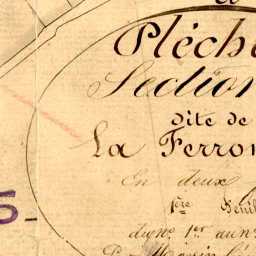 Pléch
Section
dite de
La Ferron
En deux
1ère Feuil
du No 1er au n
5